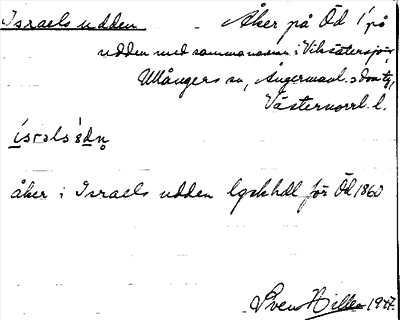 Israels udden Åker på Öd 1 på
udden med samma namn i Viksätersjön,
Ullångers sn, Ångermanl.s domsg,
Västernorrl. l.
åker i Israels udden lgskhdl för Öd 1860
Sven Hillen 1947.